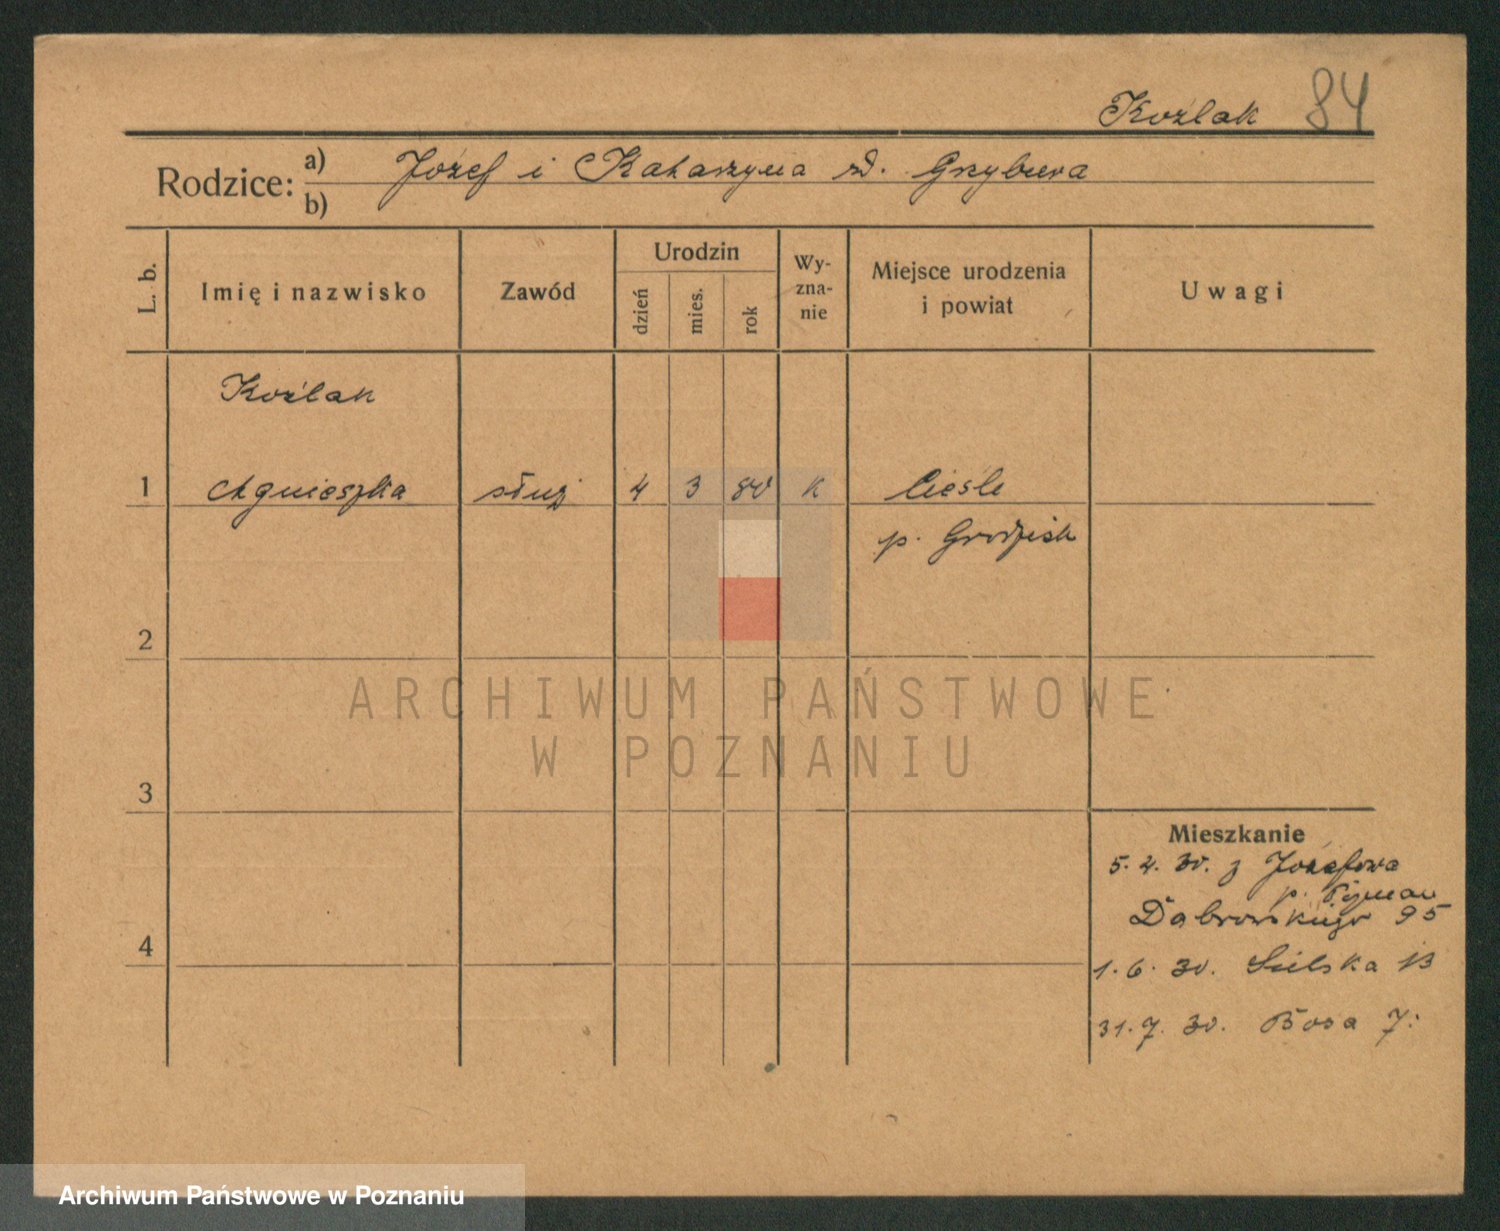 Koźlak 84
Rodzice: a) Józef i Katarzyna zd. Grzybuwa
b)
L. b.
Imię i nazwisko
Zawód
Urodzin
dzień
mies.
rok
Wy-
zna-
nie
Miejsce urodzenia
i powiat
Uwagi
Koźlak
1 Agnieszka służ 4 3 80 k Cieśle
p. Grodzisk
2
ARCHIWUM PAŃSTWOWE
W POZNANIU
3
Mieszkanie
5. 2. 30. z Józefowa
p.
Dąbrowskiego 95
4
1. 6. 30. Sielska 13
31. 7. 30. Bosa 7.
Archiwum Państwowe w Poznaniu